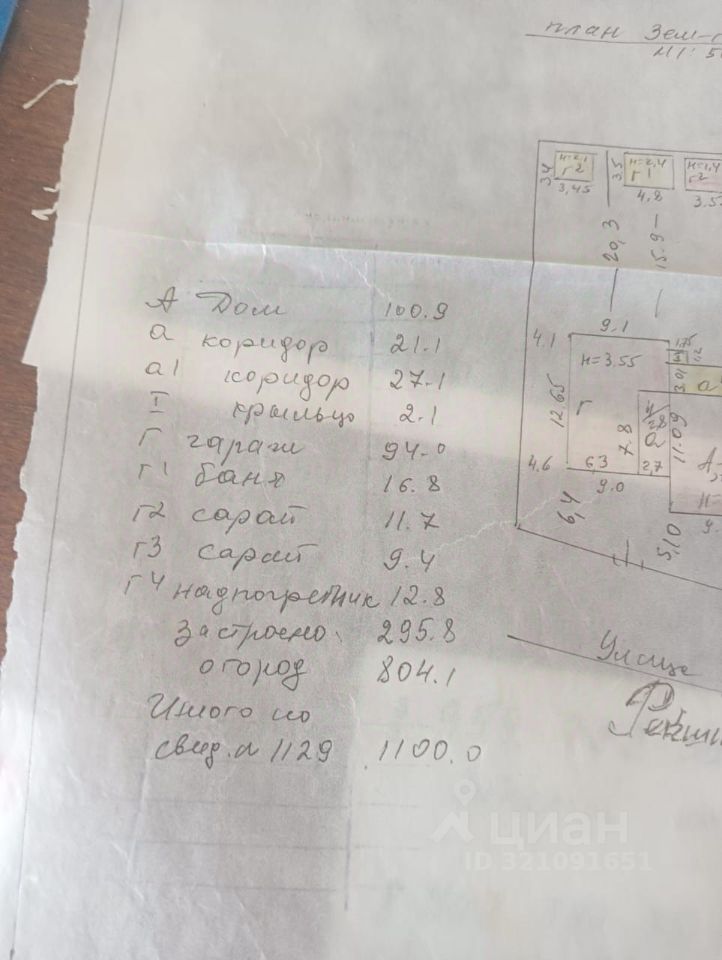 план Зем-
М1:5
н=2,1
г2
3,4
3,45
н=2,4
г1
3,5
4,8
н=1,4
г2
3,5
20,3
15.9
А Дом 100.9
а коридор 21.1
а1 коридор 27.1
I крыльцо 2.1
Г гараж 94.0
г1 баня 16.8
г2 сарай 11.7
г3 сарай 9.4
г4 надпогребник 12.8
застроено 295.8
огород 804.1
Итого по
свид. 1129 1100.0
4.1
9.1
1,75
н=3.55
3.91
а
12,65
Г
7.8
а
11.09
А
4.6
6,3
2,7
9.0
н
9.
6,4
5,10
Улица
циан
ID 321091651